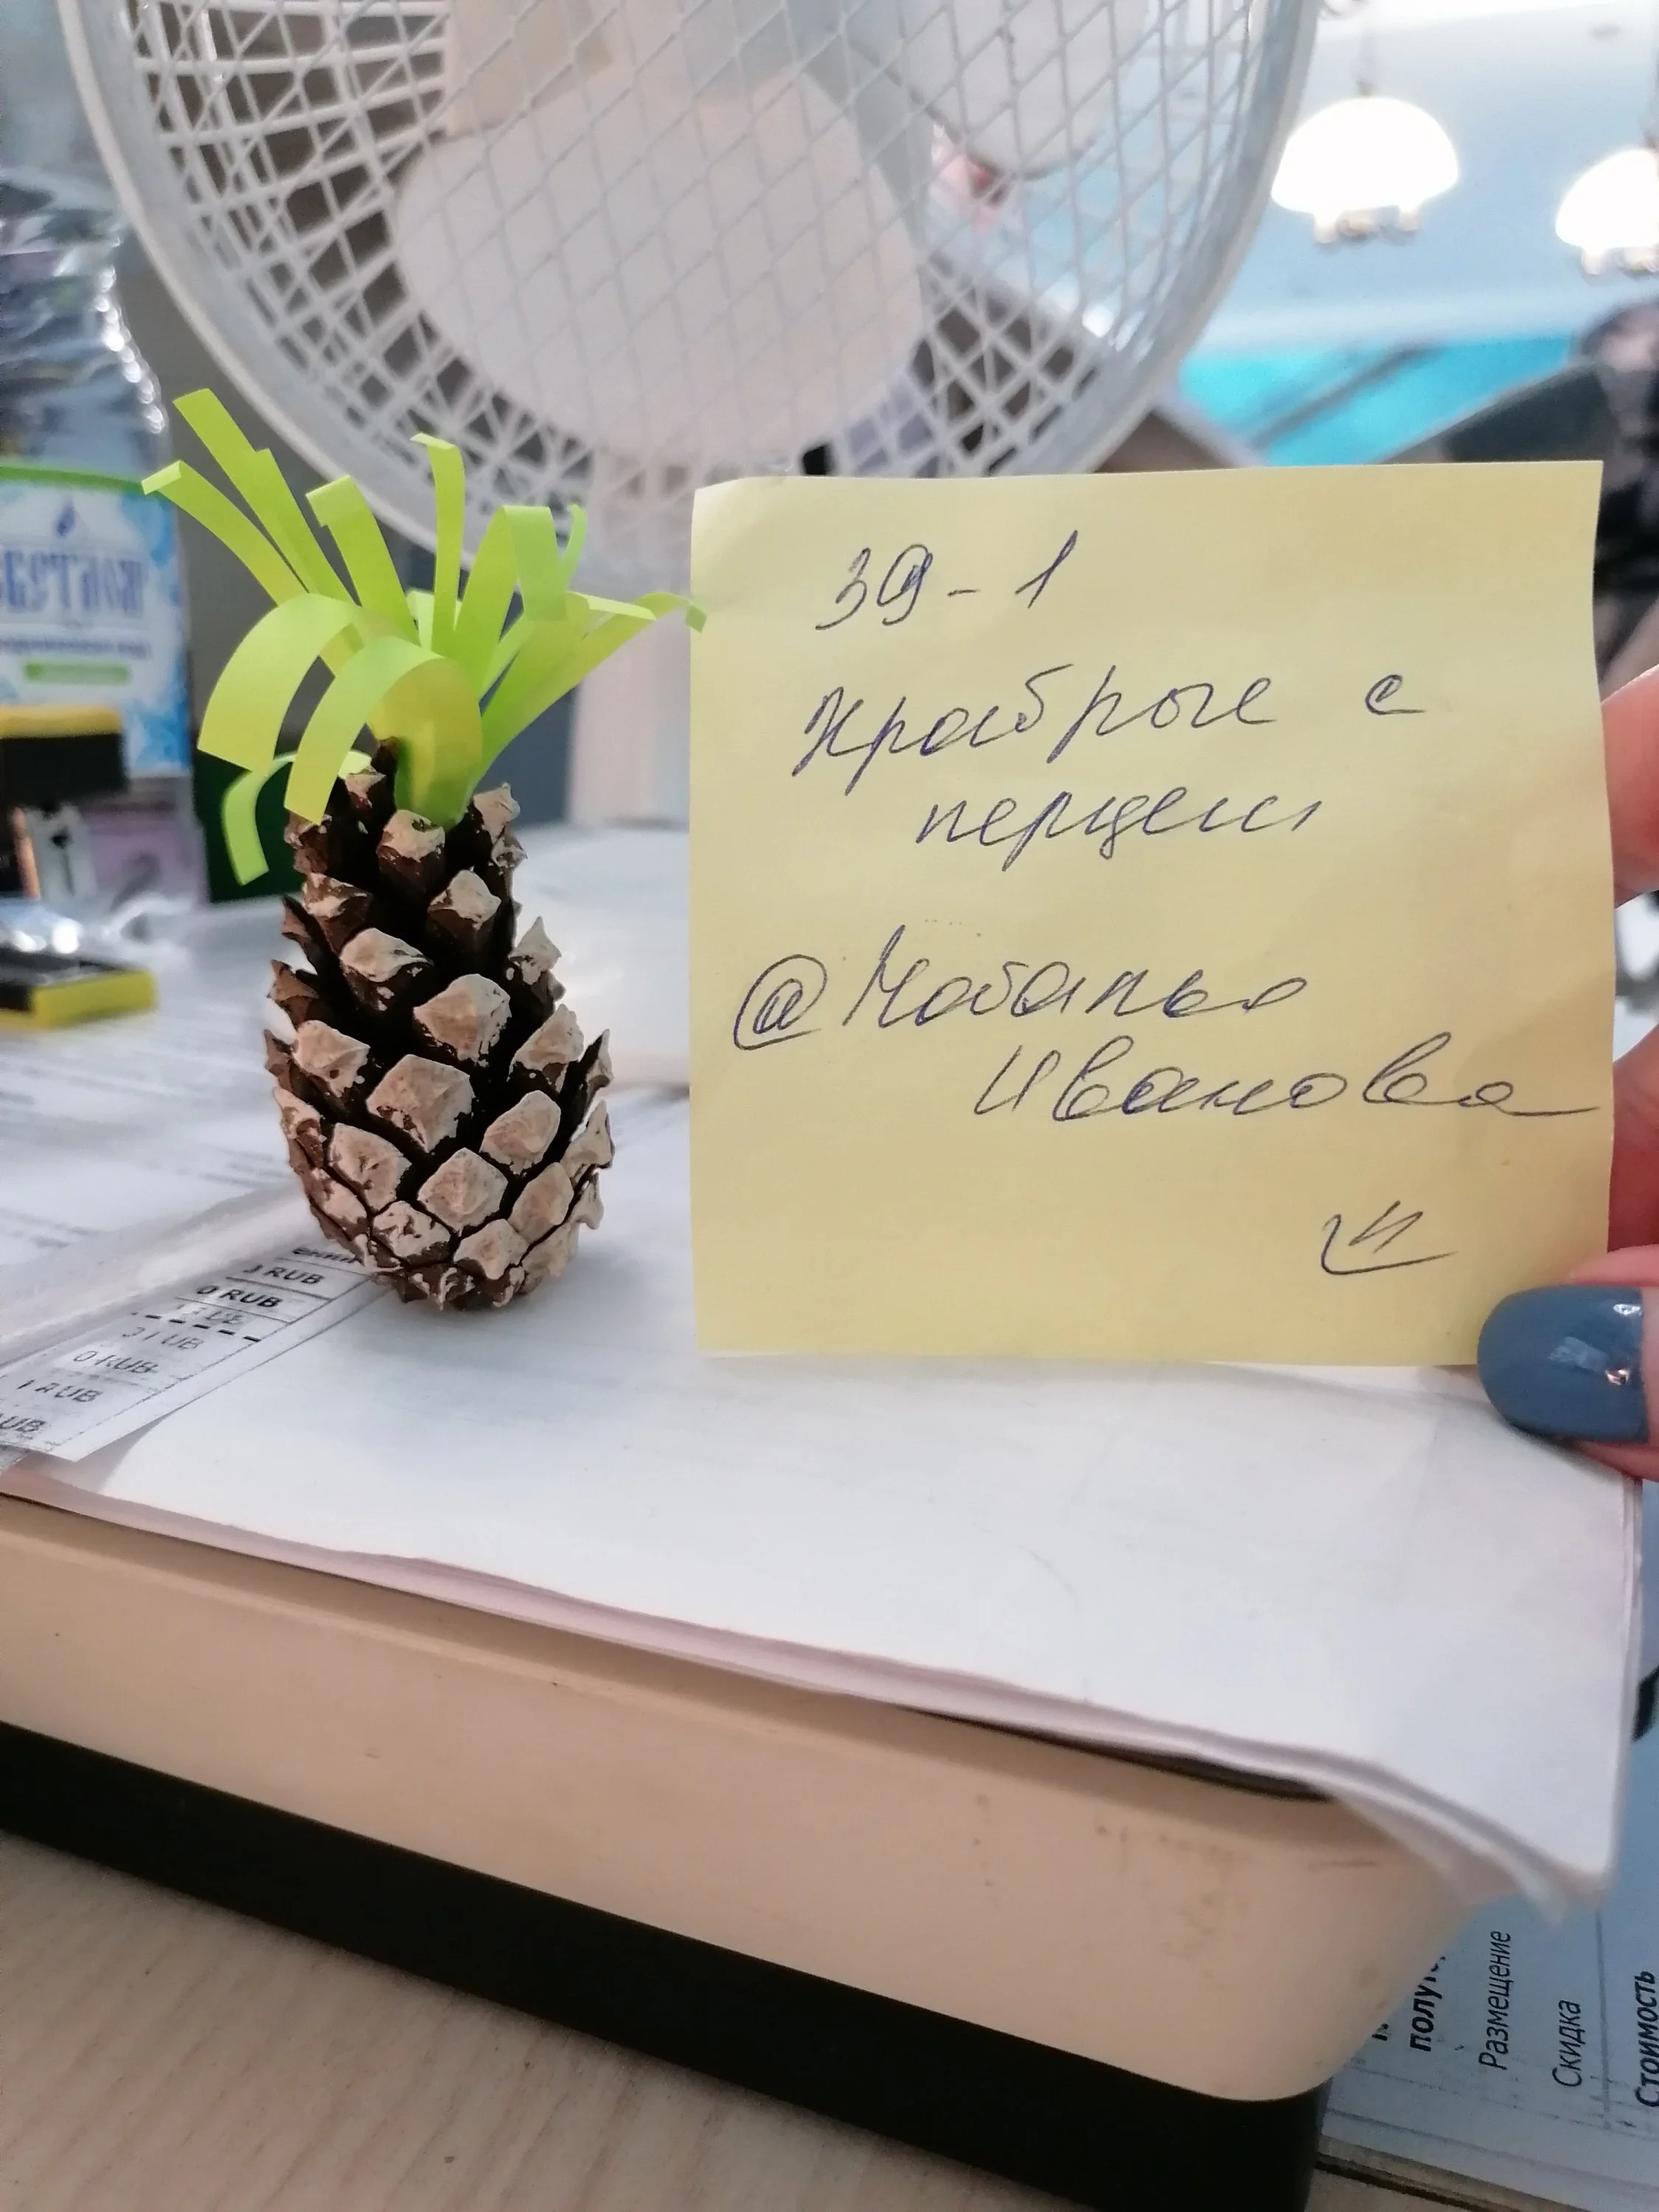 ЗФ-1
Храбрые с
перцем
@Наталья
Иванова
RUB
0 RUB
0 RUB
RUB
UB
Размещение
Скидка
Стоимость